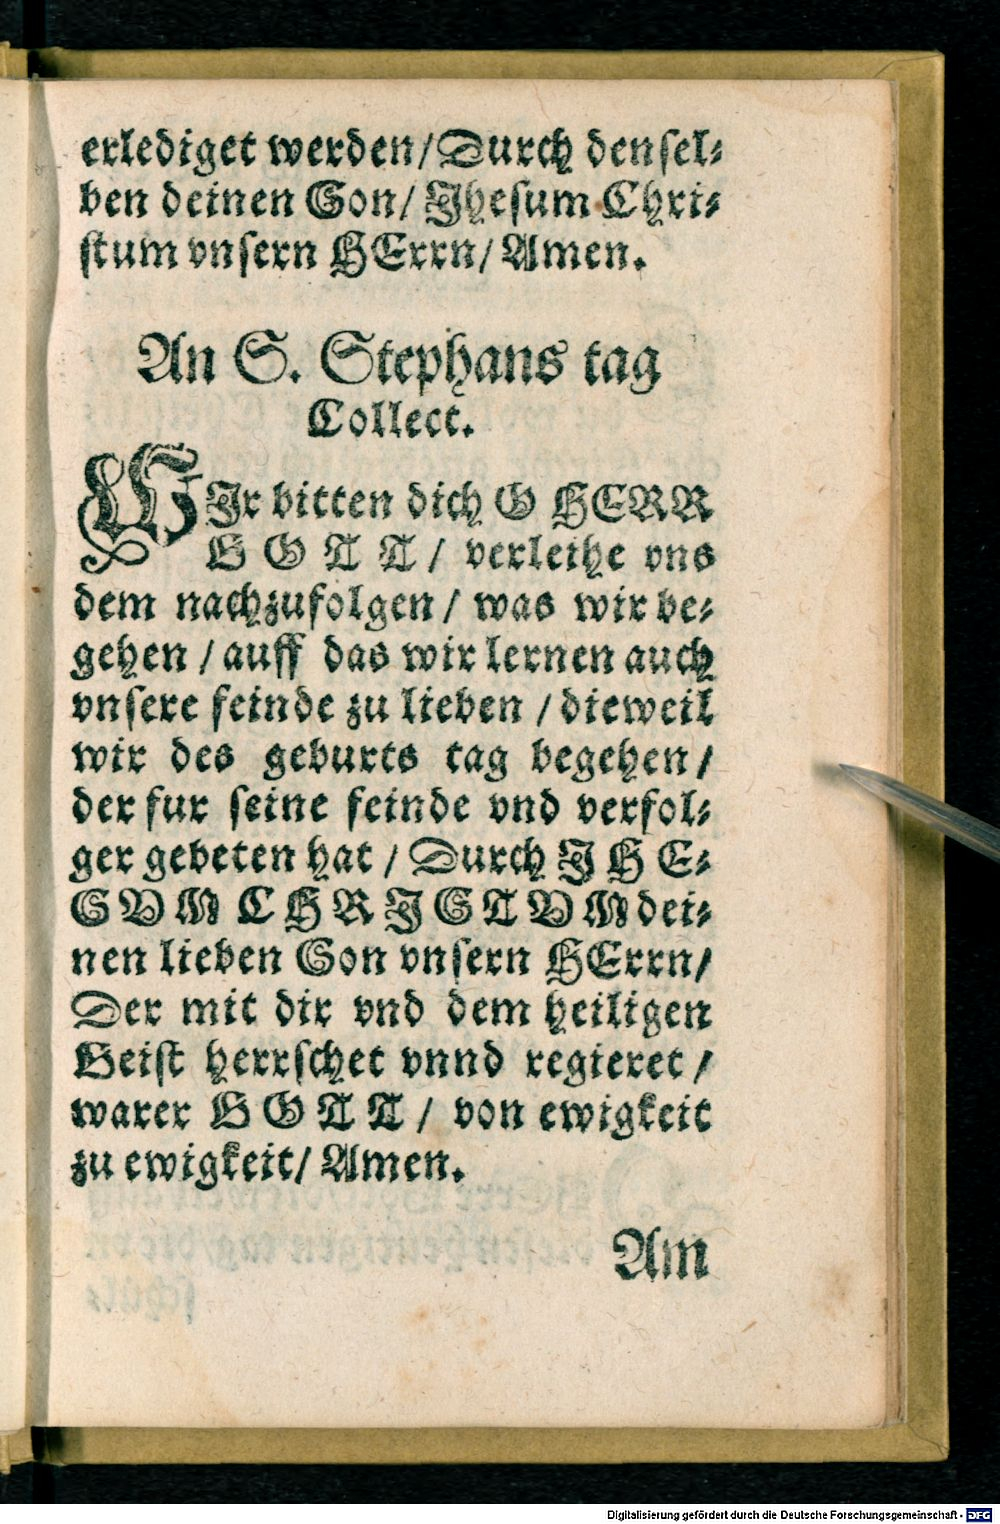 erlediget werden/Durch denſel⸗
ben deinen Son/ Jheſum Chri⸗
ſtum vnſern HErrn/ Amen.
An S. Stephans tag
Collect.
WJr bitten dich O HERR
GOTT/ verleihe vns
dem nachzufolgen/ was wir be⸗
gehen/auff das wir lernen auch
vnſere feinde zu lieben/dieweil
wir des geburts tag begehen/
der fur ſeine feinde vnd verfol⸗
ger gebeten hat/ Durch JHE⸗
SVM CHRJSTVM dei⸗
nen lieben Son vnſern HErrn/
Der mit dir vnd dem heiligen
Geiſt herrſchet vnnd regieret/
warer GOTT/ von ewigkeit
zu ewigkeit/ Amen.
Am
Digitalisierung gefördert durch die Deutsche Forschungsgemeinschaft - DFG